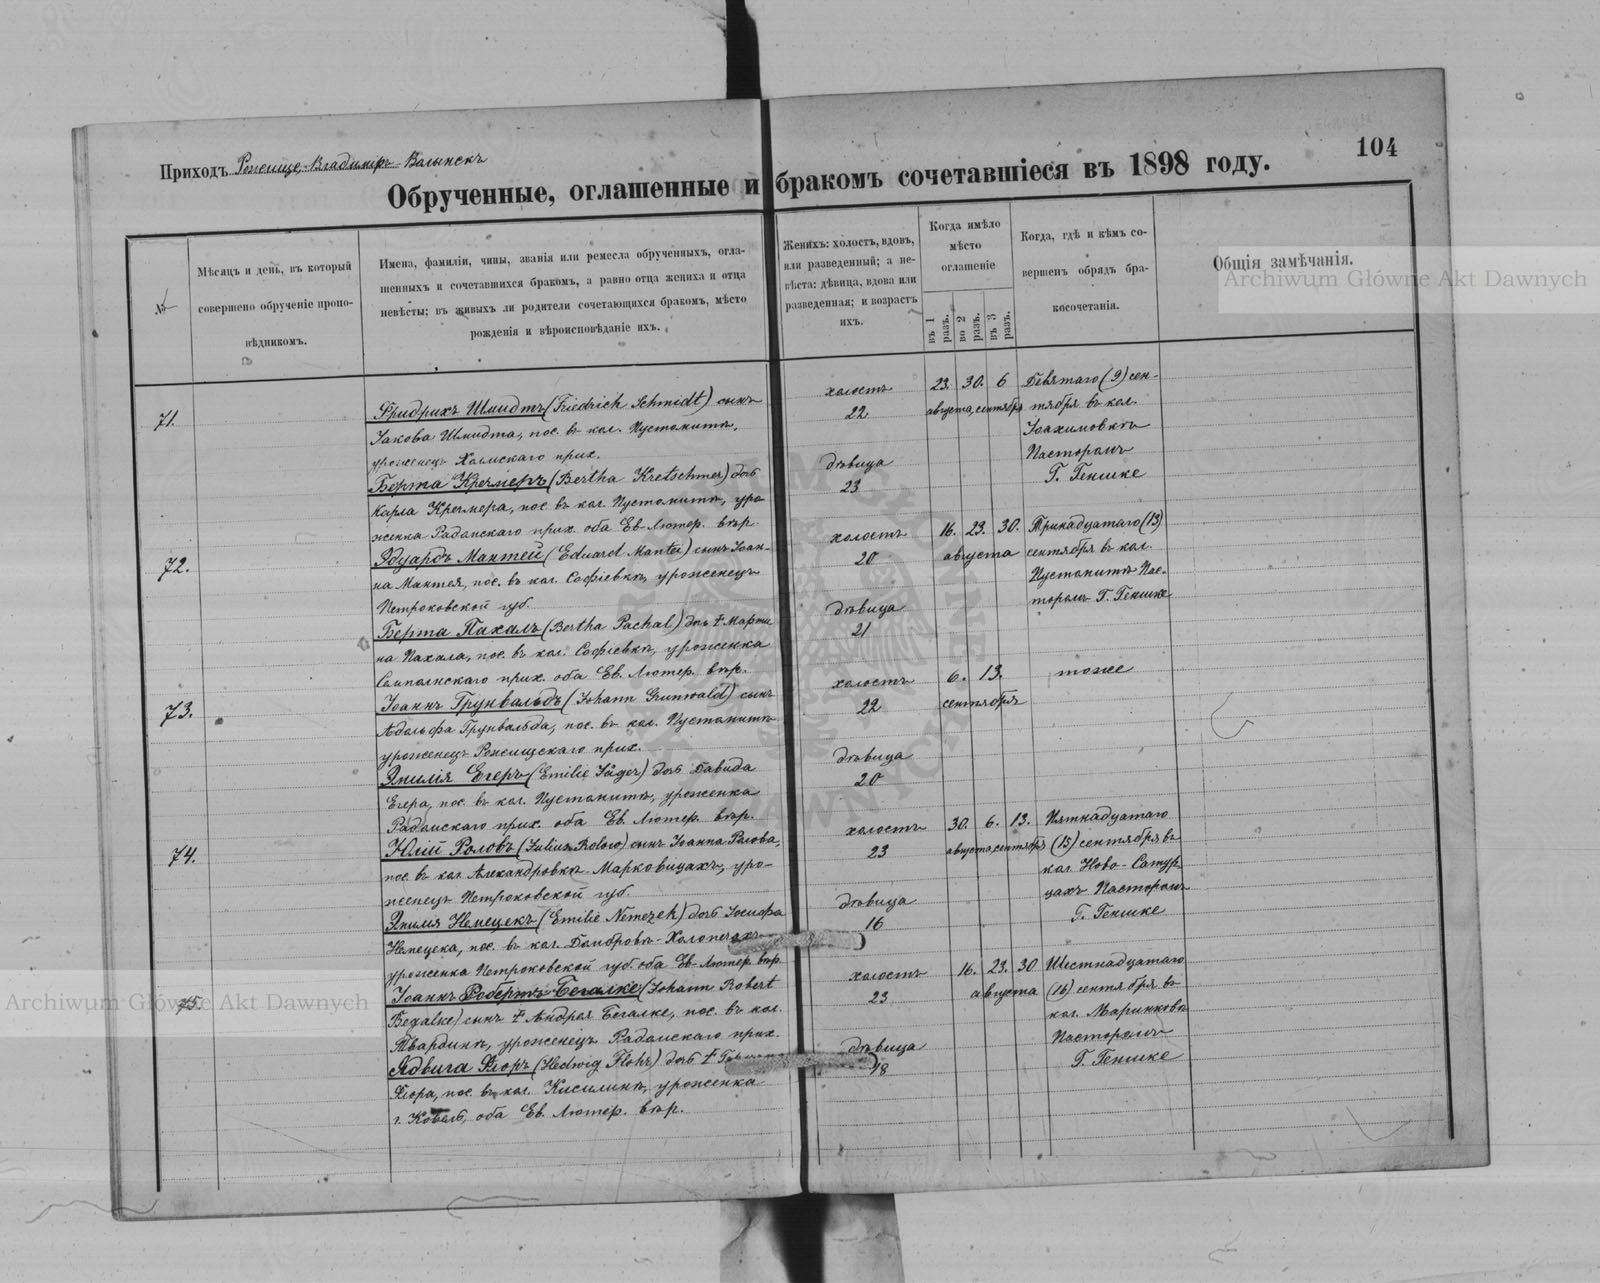 Приходъ Рожище-Владимиръ-Волынскъ
104
Обрученные, оглашенные и бракомъ сочетавшіеся въ 1898 году.
№
Мѣсяцъ и день, въ который
совершено обрученіе пропо-
вѣдникомъ.
Имена, фамиліи, чины, званія или ремесла обрученныхъ, огла-
шенныхъ и сочетавшихся бракомъ, а равно отца жениха и отца
невѣсты; въ живыхъ ли родители сочетающихся бракомъ, мѣсто
рожденія и вѣроисповѣданіе ихъ.
Женихъ: холостъ, вдовъ,
или разведенный; а не-
вѣста: дѣвица, вдова или
разведенная; и возрастъ
ихъ.
Когда имѣло
мѣсто
оглашеніе
въ 1 разъ.
во 2 разъ.
въ 3 разъ.
Когда, гдѣ и кѣмъ со-
вершенъ обрядъ бра-
косочетанія.
Общія замѣчанія.
Archiwum Główne Akt Dawnych
71.
Фридрихъ Шмидтъ (Friedrich Schmidt) сынъ
Іакова Шмидта, пос. въ кол. Пустомитѣ,
уроженецъ Холмскаго прих.
Берта Кречмеръ (Bertha Kretschmer) дочь
Карла Кречмера, пос. въ кол. Пустомитѣ, уро-
женка Радомскаго прих. оба Ев. Лютер. вѣр.
холостъ
22
дѣвица
23
23. 30. 6
августа, сентября
Девятаго (9) сен-
тября въ кол.
Іоахимовкѣ
Пасторомъ
Г. Геншке
72.
Эдуардъ Мантей (Eduard Mantei) сынъ Іоан-
на Мантея, пос. въ кол. Софіевкѣ, уроженецъ
Петроковской губ.
Берта Пахалъ (Bertha Pachal) дочь † Марти
на Пахала, пос. въ кол. Софіевкѣ, уроженка
Сомполнскаго прих. оба Ев. Лютер. вѣр.
холостъ
20
дѣвица
21
16. 23. 30.
августа
Тринадцатаго (13)
сентября въ кол.
Пустомитѣ Пас-
торомъ Г. Геншке
73.
Іоаннъ Грунвальдъ (Johann Grunwald) сынъ
Адольфа Грунвальда, пос. въ кол. Пустомитѣ
уроженецъ Рожищскаго прих.
Эмилія Егеръ (Emilie Jäger) дочь Давида
Егера, пос. въ кол. Пустомитѣ, уроженка
Радомскаго прих. оба Ев. Лютер. вѣр.
холостъ
22
дѣвица
20
6. 13.
сентября
тоже
74.
Юлій Роловъ (Julius Rolow) сынъ Іоанна Ролова,
пос. въ кол. Александровкѣ-Марковицахъ, уро-
женецъ Петроковской губ.
Эмилія Немецекъ (Emilie Nemezek) дочь Іосифа
Немецека, пос. въ кол. Домбровѣ-Холопечахъ
уроженка Петроковской губ. оба Ев. Лютер. вѣр.
холостъ
23
дѣвица
16
30. 6. 13.
августа, сентября
Пятнадцатаго
(15) сентября въ
кол. Ново-Сатур-
цахъ Пасторомъ
Г. Геншке
75.
Іоаннъ Робертъ Бегалке (Johann Robert
Begalke) сынъ † Андрея Бегалке, пос. въ кол.
Твардинѣ, уроженецъ Радомскаго прих.
Ядвига Флоръ (Hedwig Flohr) дочь †
Флора, пос. въ кол. Киселинѣ, уроженка
г. Ковель, оба Ев. Лютер. вѣр.
холостъ
23
дѣвица
18
16. 23. 30
августа
Шестнадцатаго
(16) сентября въ
кол. Маринковѣ
Пасторомъ
Г. Геншке
Archiwum Główne Akt Dawnych
ARCHIWUM GŁÓWNE AKT DAWNYCH